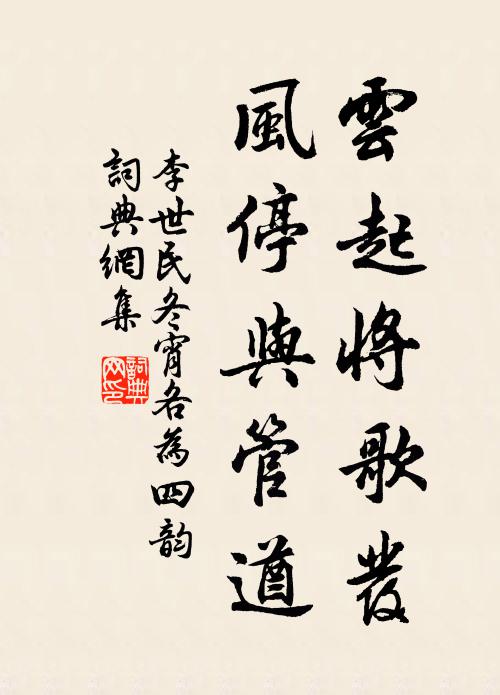 雲起將歌發
風停與管遒
李世民冬宵各為四韵
詞典網集
詞典
网印